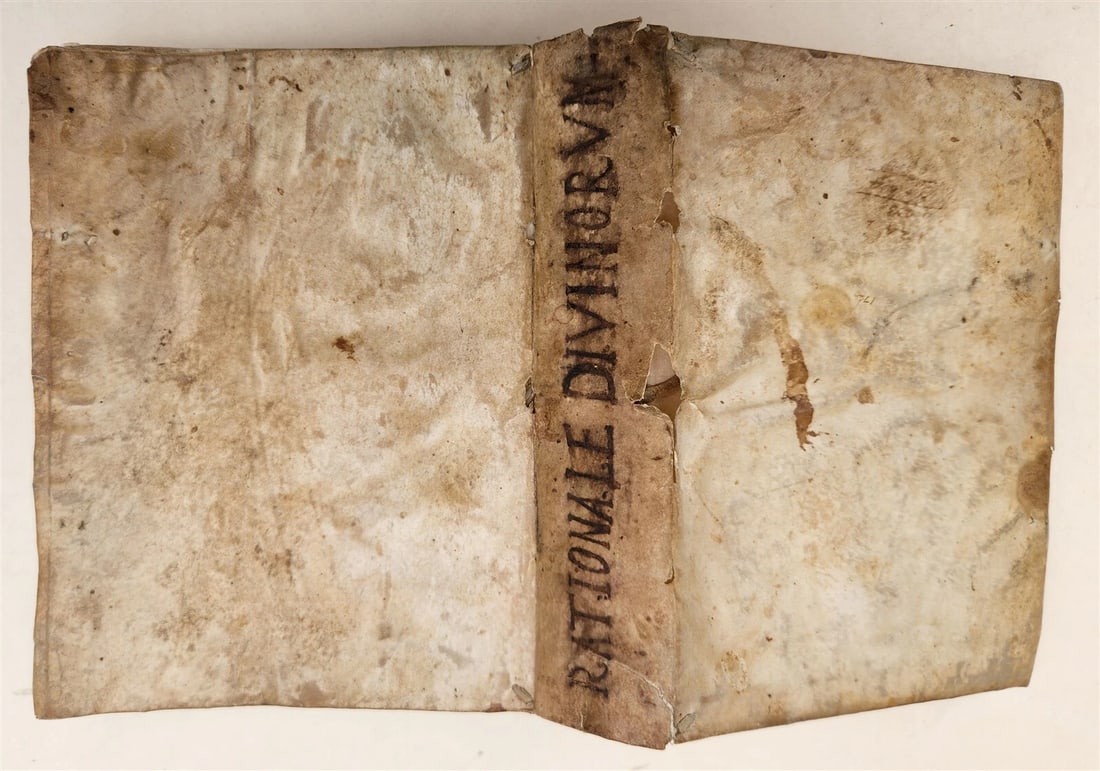 RATIONALE DIVINORVM
761